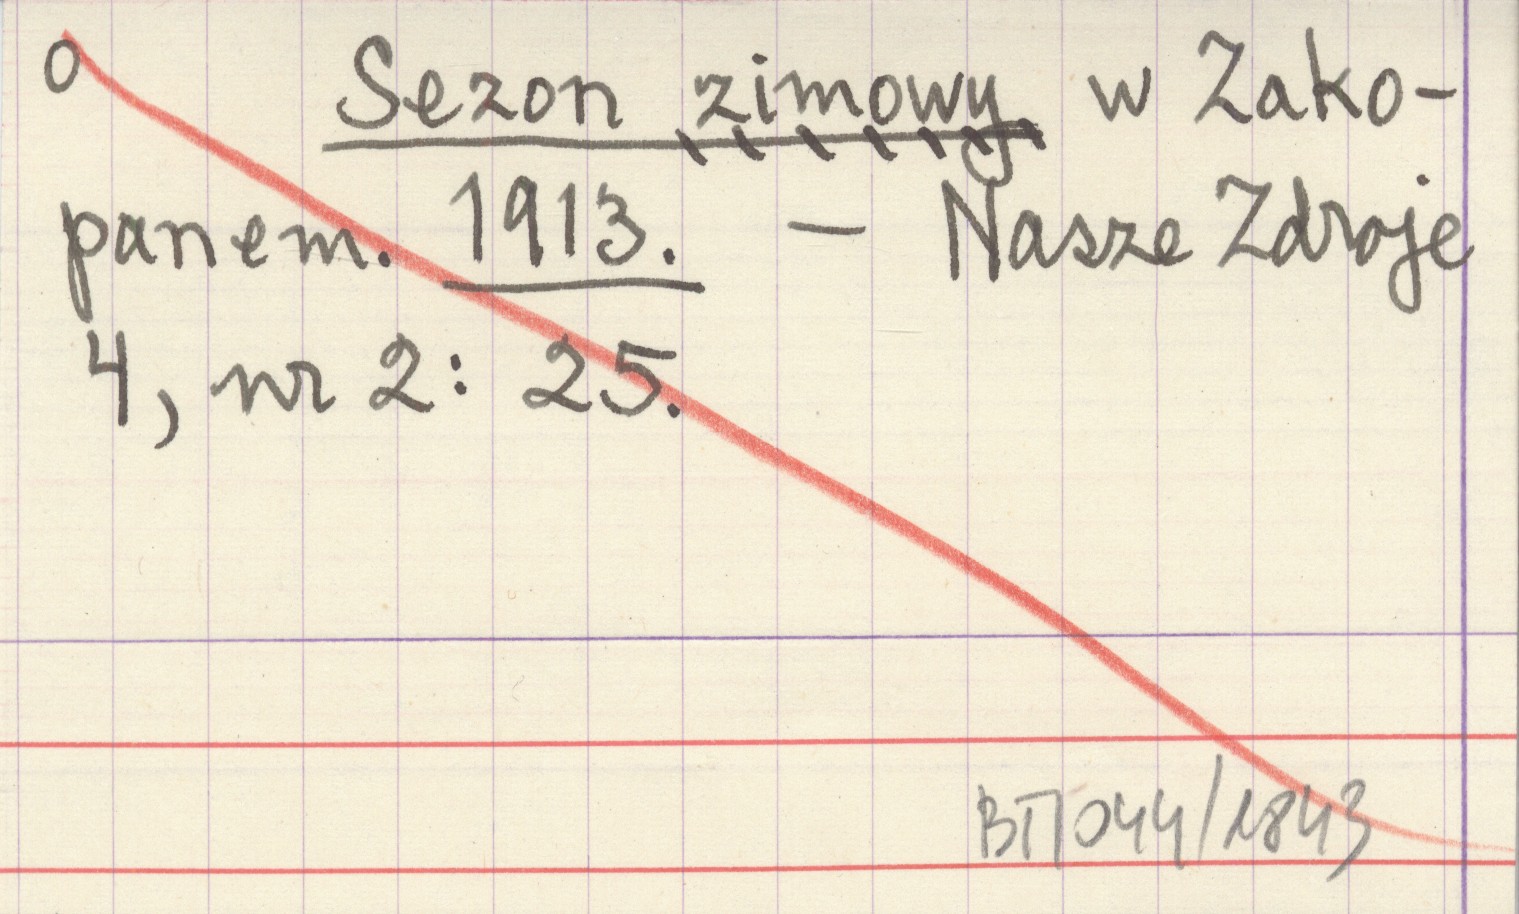 0 Sezon zimowy w Zako-
panem. 1913. — Nasze Zdroje
4, nr 2: 25.
BTI 044/1843